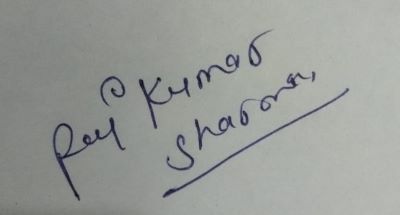 Raj Kumar
Sharma